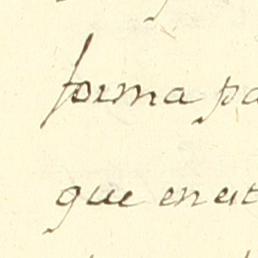 forma pa
que en et